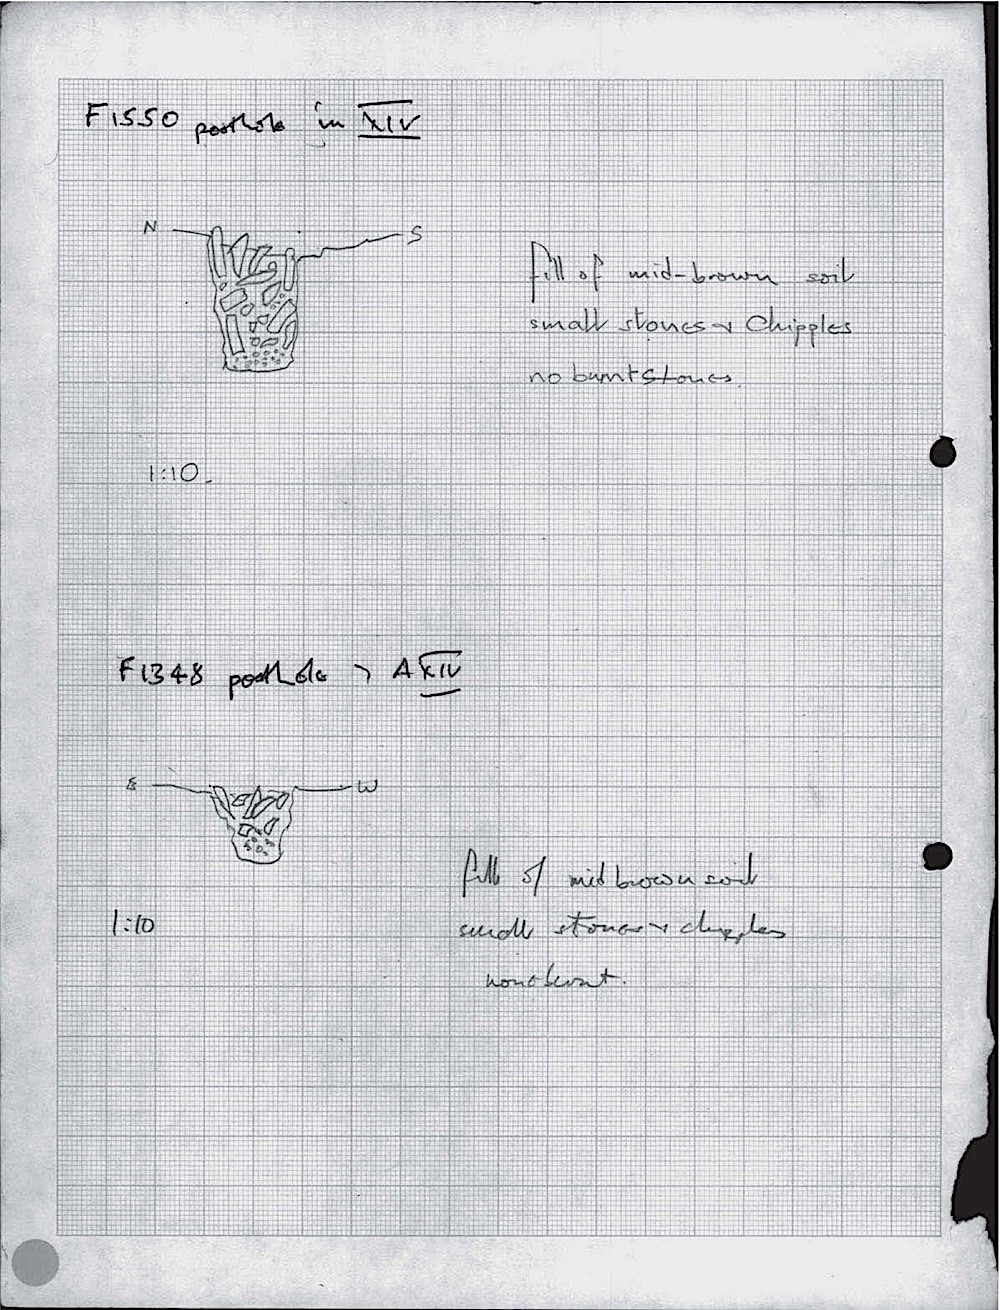 F1550 posthole in XIV
N S
fill of mid-brown soil
small stones + Chipples
no burnt stones.
1:10.
F1348 posthole AXIV
E W
fill of mid brown soil
1:10
small stones + chipples
none burnt.